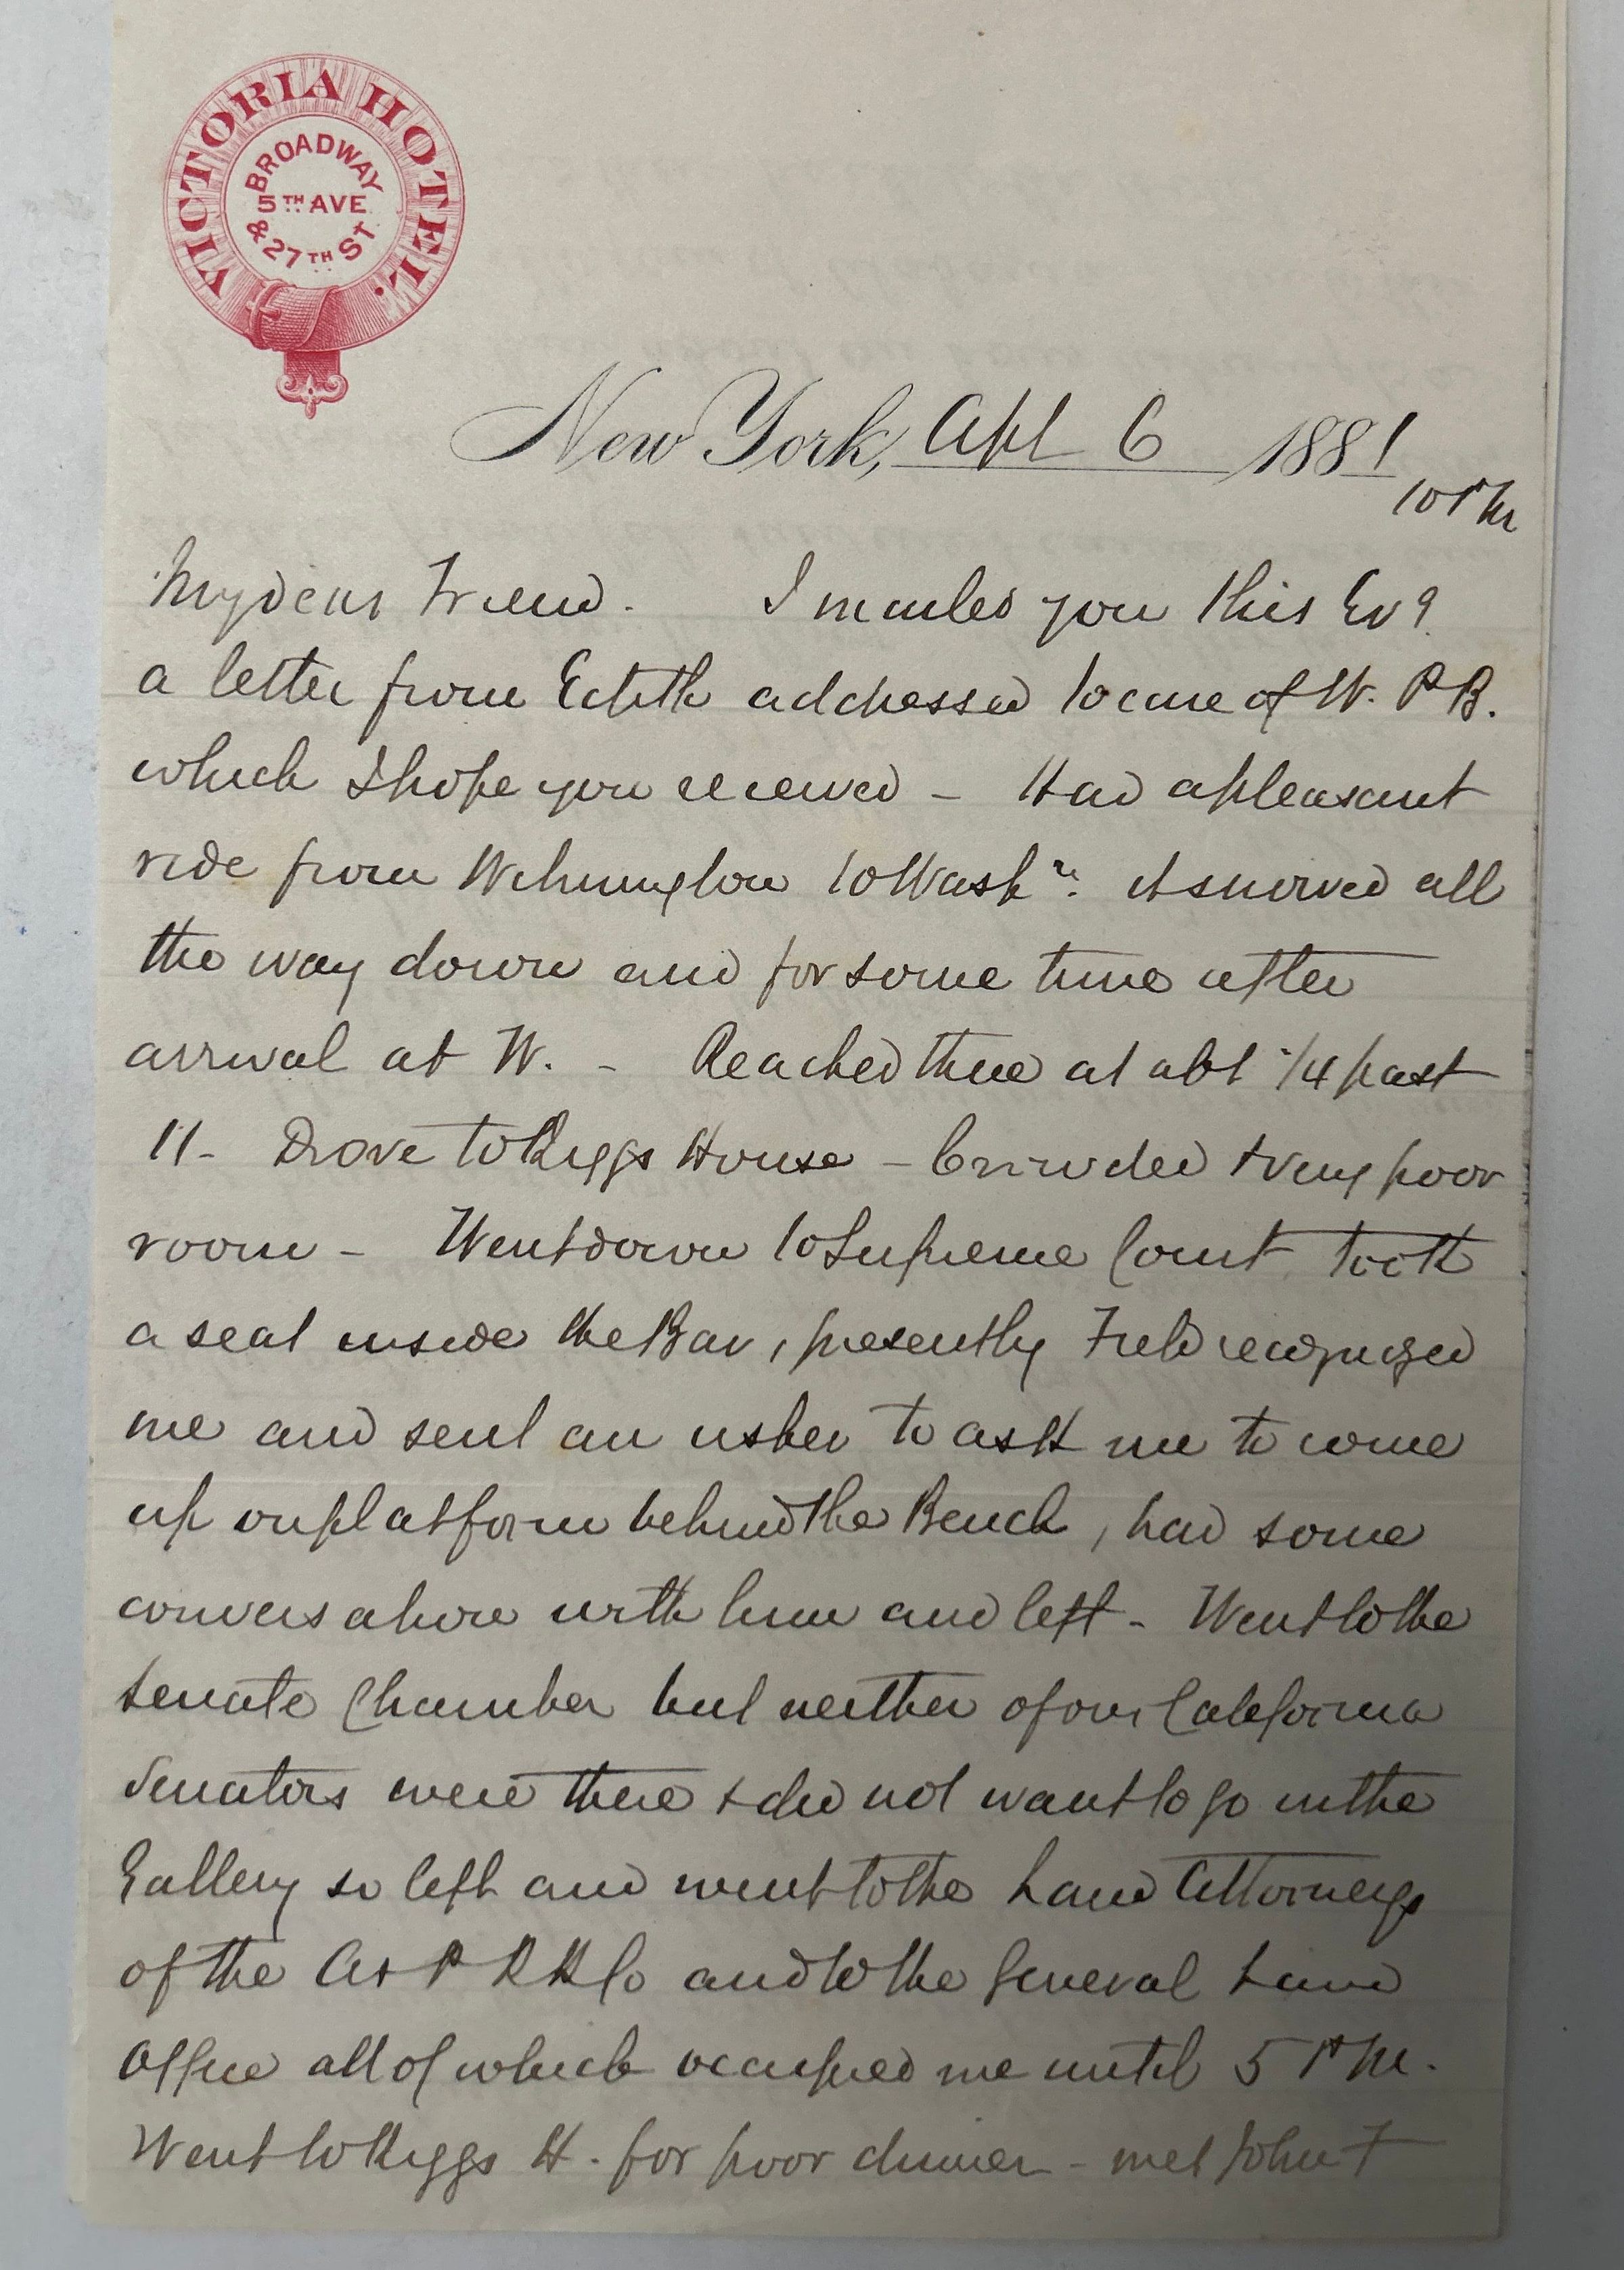 VICTORIA HOTEL.
BROADWAY
5TH AVE
& 27TH ST.
New York, Apl 6 1881
10 PM
My dear Friend. I mailed you this Evg
a letter from Edith addressed to care of W. P B.
which I hope you received – Had a pleasant
ride from Wilmington to Washn. it snowed all
the way down and for some time after
arrival at W. – Reached there at abt 1/4 past
11 – Drove to Riggs House – Crowded & very poor
room – Went down to Supreme Court took
a seat inside the Bar, presently Field recognized
me and sent an usher to ask me to come
up on platform behind the Bench, had some
conversation with him and left – Went to the
Senate Chamber but neither of our California
Senators were there & did not want to go in the
Gallery so left and went to the Land Attorneys
of the A & P R R Co and to the General Land
Office all of which occupied me until 5 PM.
Went to Riggs H. for poor dinner – met John F